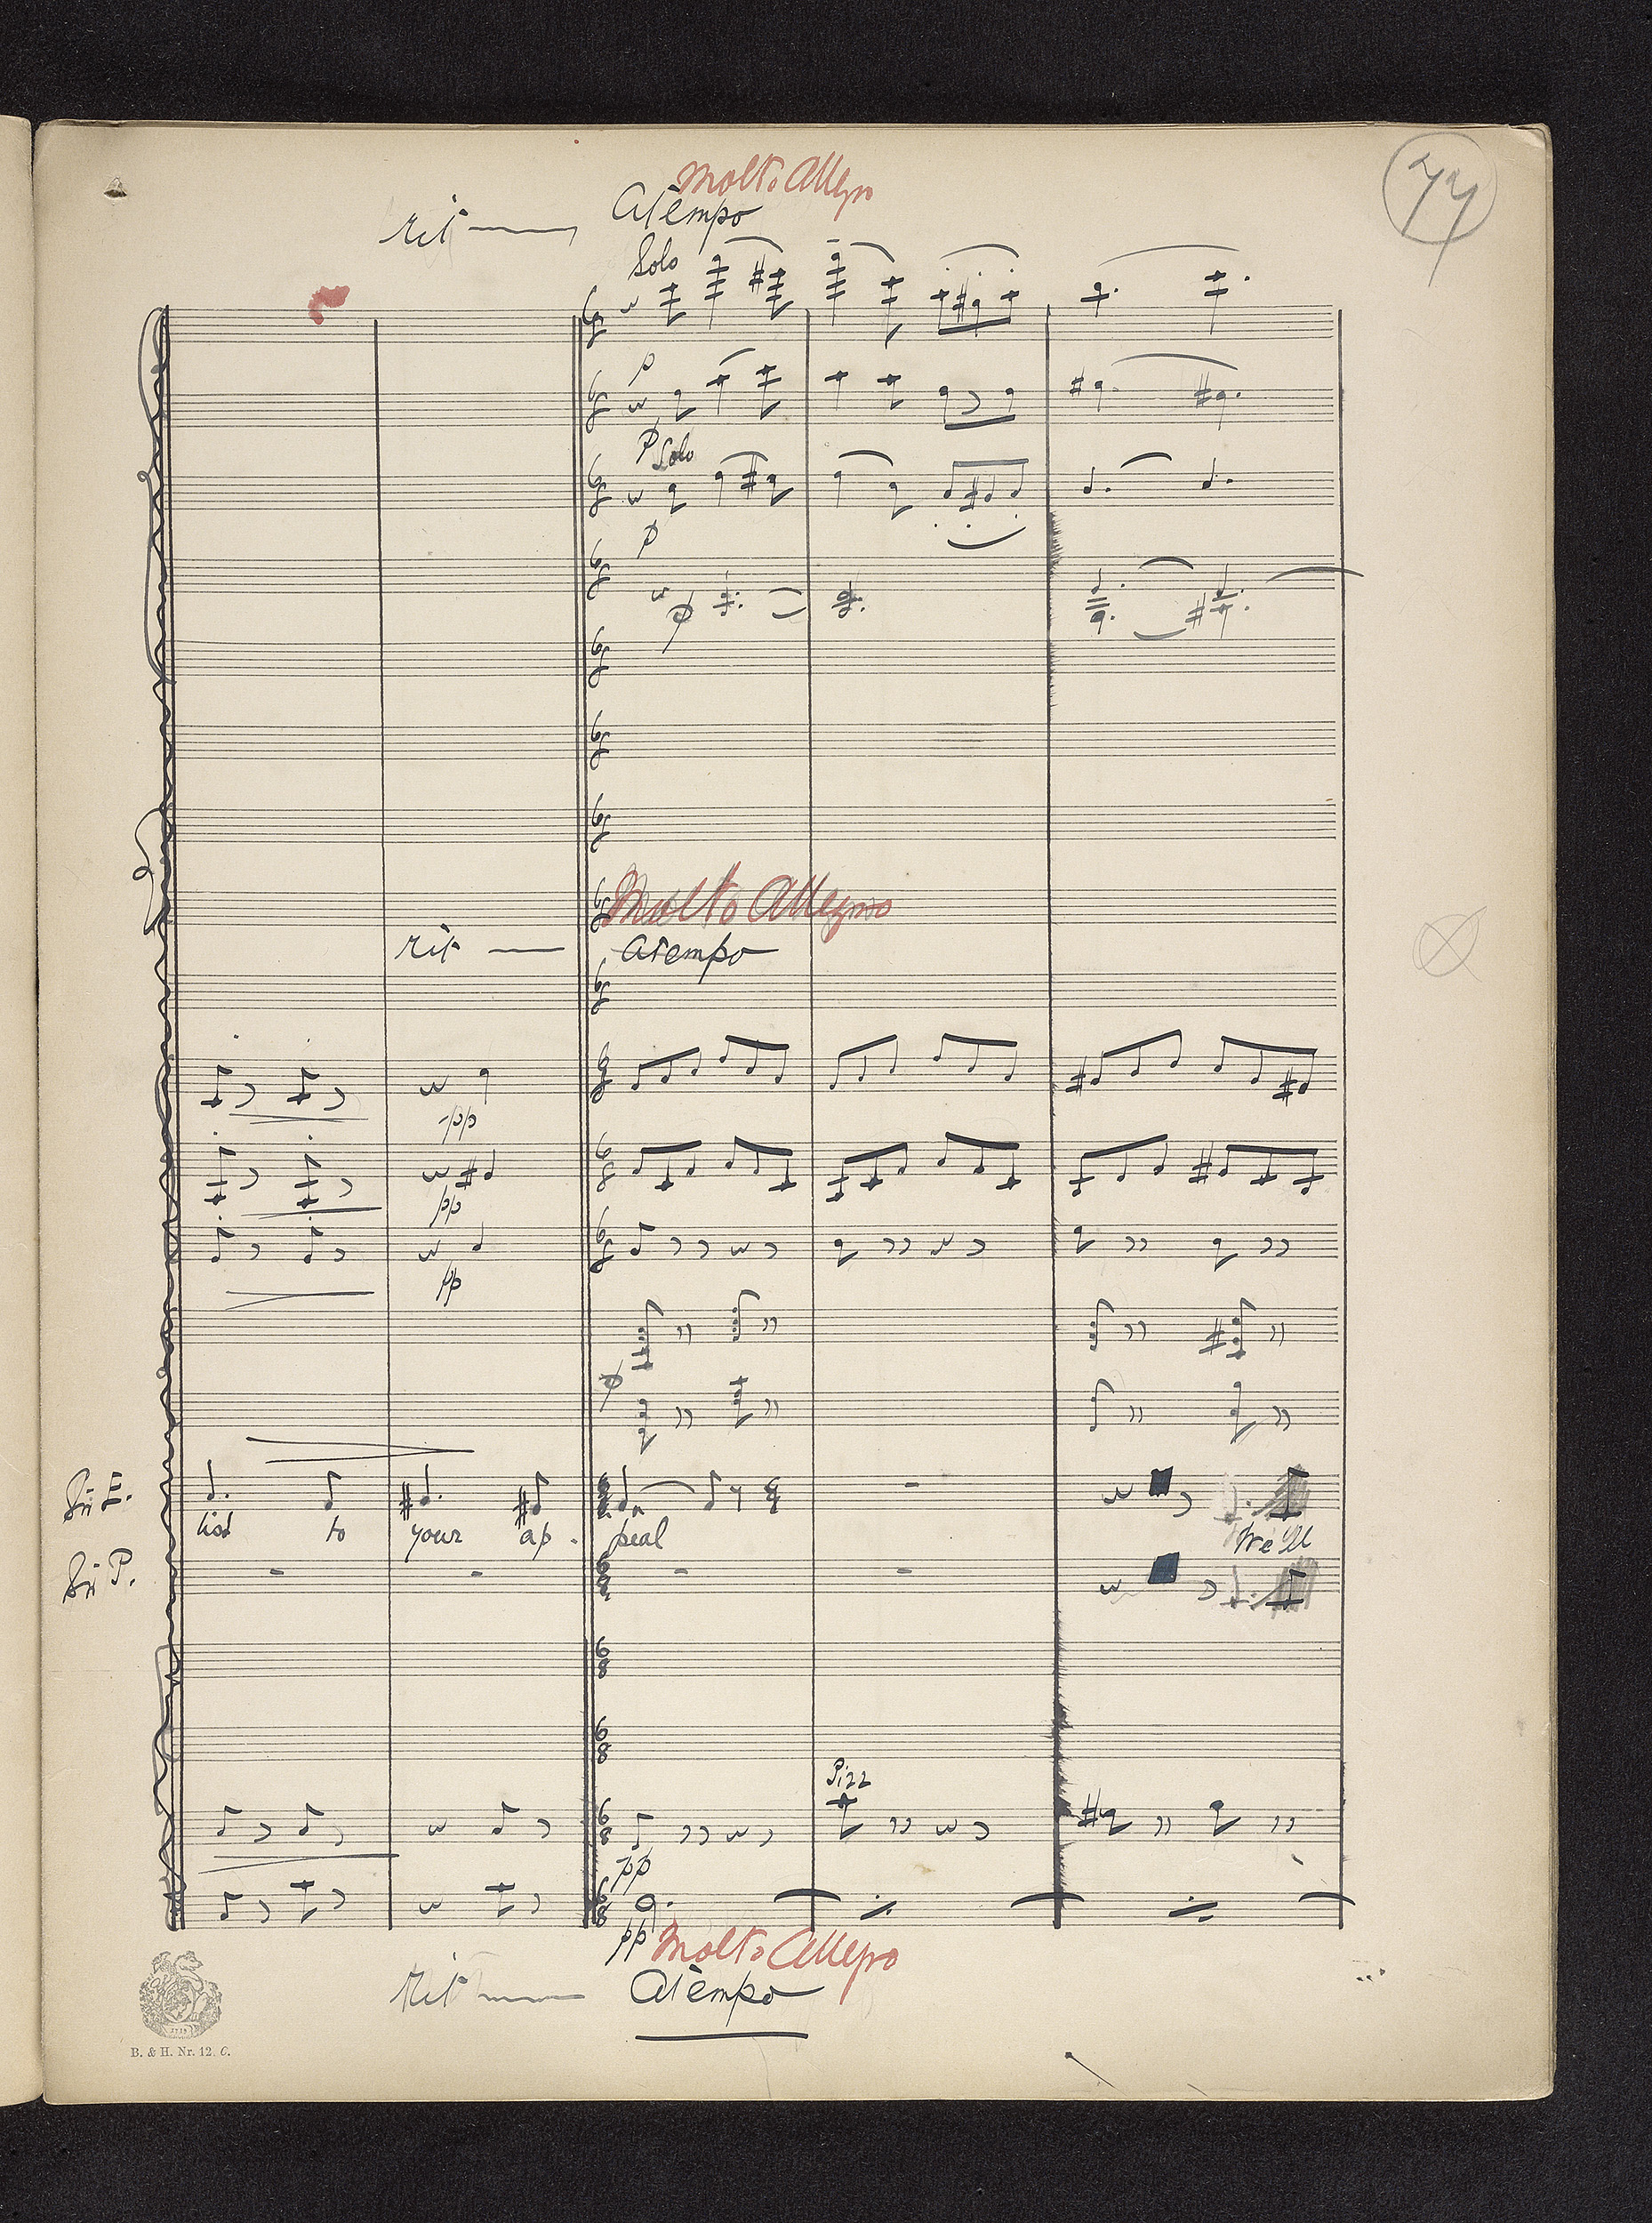 77
Molto Allgro
rit
Atempo
Solo
p
p
Solo
p
p
Molto Allegro
rit
Atempo
pp
pp
pp
p
Sir E.
list to your ap - peal
We'll
Sir P.
Pizz
pp
pp
Molto Allegro
Rit
Atempo
B. & H. Nr. 12. C.